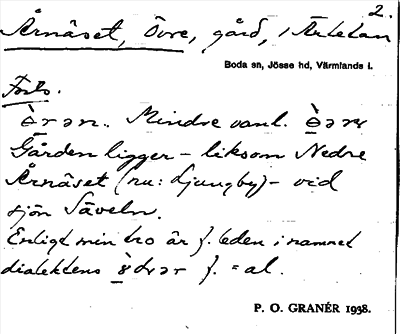 2.
Årnäset, Övre, gård, i Ärtetan
Boda sn, Jösse hd, Värmlands l.
Forts.
è̱rən. Mindre vanl. è̱ər
Gården ligger – liksom Nedre
Årnäset (nu: Ljungby) – vid
sjön Säveln.
Enligt min tro är f. leden i namnet
dialektens f. = al.
P. O. GRANÉR 1938.